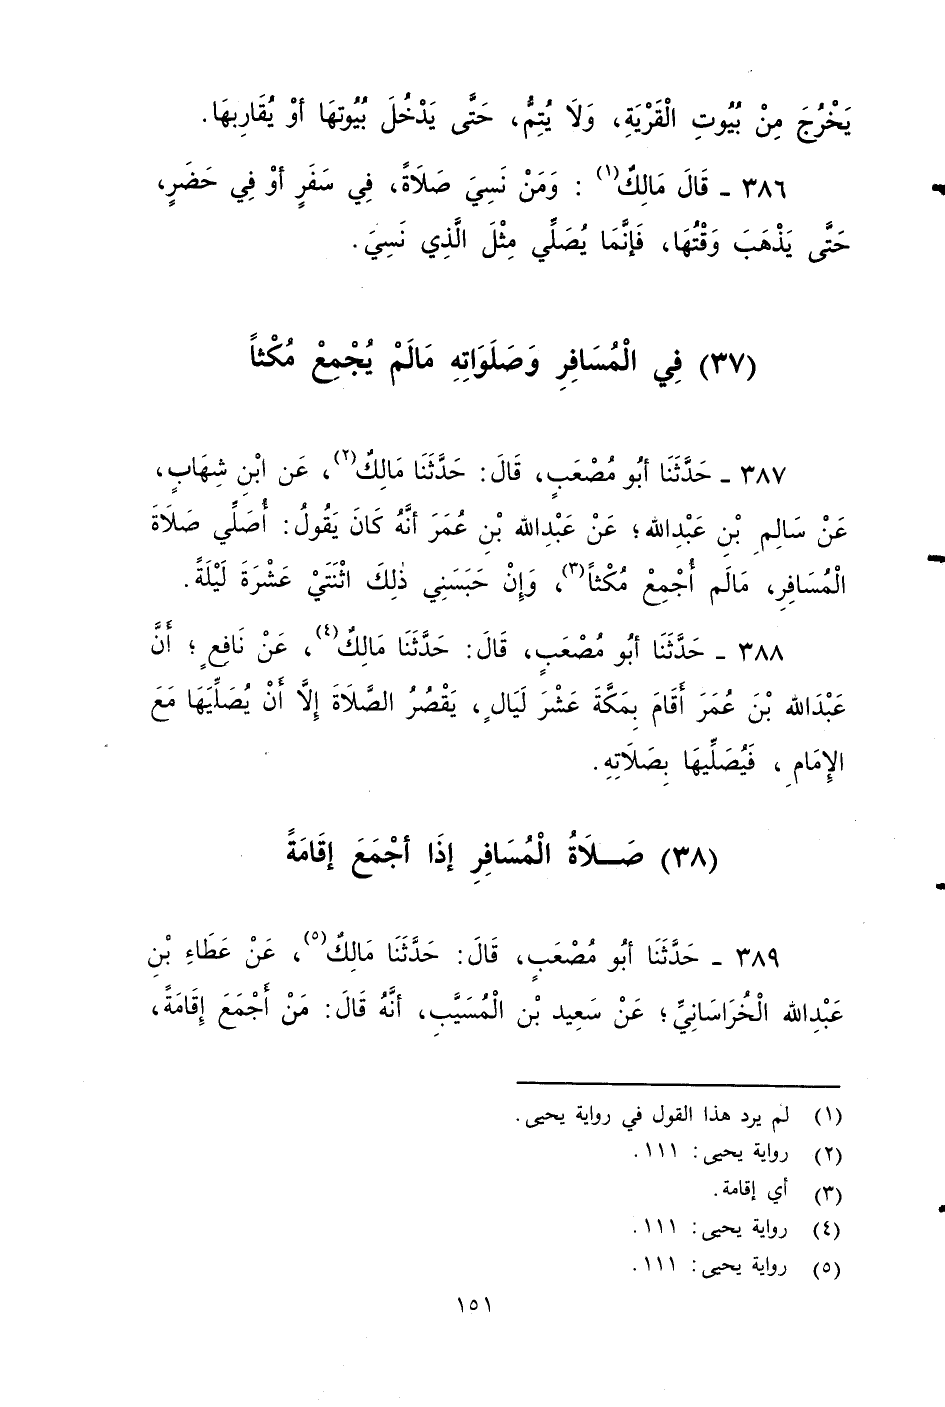 يَخْرُجَ مِنْ بُيُوتِ الْقَرْيَةِ، وَلَا يُتِمُّ، حَتَّى يَدْخُلَ بُيُوتهَا أوْ يُقَارِبهَا.
٣٨٦ - قَالَ مَالِكٌ(١) : وَمَنْ نَسِيَ صَلَاةً، فِي سَفَرٍ أوْ فِي حَضَرٍ،
حَتَّى يَذْهَبَ وَقْتُهَا، فَإنَّمَا يُصَلِّي مِثْلَ الَّذِي نَسِيَ.
(٣٧) فِي الْمُسَافِرِ وَصَلَوَاتِهِ مَالَمْ يُجْمِعْ مُكْثاً
٣٨٧ - حَدَّثَنَا أبُو مُصْعَبٍ، قَالَ: حَدَّثَنَا مَالِكٌ(٢)، عَن ابْنِ شِهَابٍ،
عَنْ سَالِمِ بْنِ عَبْدِالله؛ عَنْ عَبْدِالله بْنِ عُمَرَ أنَّهُ كَانَ يَقُولُ: أُصَلِّي صَلَاةَ
الْمُسَافِرِ، مَالَم أُجْمِعْ مُكْثاً(٣)، وَإنْ حَبَسَنِي ذٰلِكَ اثْنَتَيْ عَشْرَةَ لَيْلَةً.
٣٨٨ - حَدَّثَنَا أبُو مُصْعَبٍ، قَالَ: حَدَّثَنَا مَالِكٌ(٤)، عَنْ نَافِعٍ؛ أَنَّ
عَبْدَالله بْنَ عُمَرَ أَقَامَ بِمَكَّةَ عَشْرَ لَيَالٍ، يَقْصُرُ الصَّلَاةَ إلَّا أَنْ يُصَلِّيَهَا مَعَ
الإِمَامِ، فَيُصَلِّيهَا بِصَلَاتِهِ.
(٣٨) صَلَاةُ الْمُسَافِرِ إذَا أجْمَعَ إقَامَةً
٣٨٩ - حَدَّثَنَا أبُو مُصْعَبٍ، قَالَ: حَدَّثَنَا مَالِكٌ(٥)، عَنْ عَطَاءِ بْنِ
عَبْدِالله الْخُرَاسَانِيِّ؛ عَنْ سَعِيد بْنِ الْمُسَيَّبِ، أنَّهُ قَالَ: مَنْ أَجْمَعَ إِقَامَةً،
(١) لم يرد هذا القول في رواية يحيى.
(٢) رواية يحيى: ١١١.
(٣) أي إقامة.
(٤) رواية يحيى: ١١١.
(٥) رواية يحيى: ١١١.
١٥١